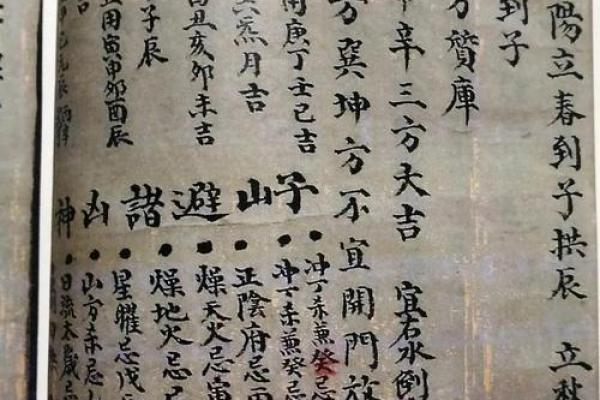 陽立春到子拱辰 立秋
到子
方質庫
辛三方大吉 宜右水倒
方巽坤方不宜開門放
開庚丁壬己吉
炁月吉
丑亥卯未吉
子辰
用寅甲卯酉辰
吉
子山避諸凶神
冲丁杀兼癸忌
冲丁未兼癸忌
正陰府忌
燥天火忌寅
燥地火忌
星曜忌戊
山方杀忌
日流太歲忌